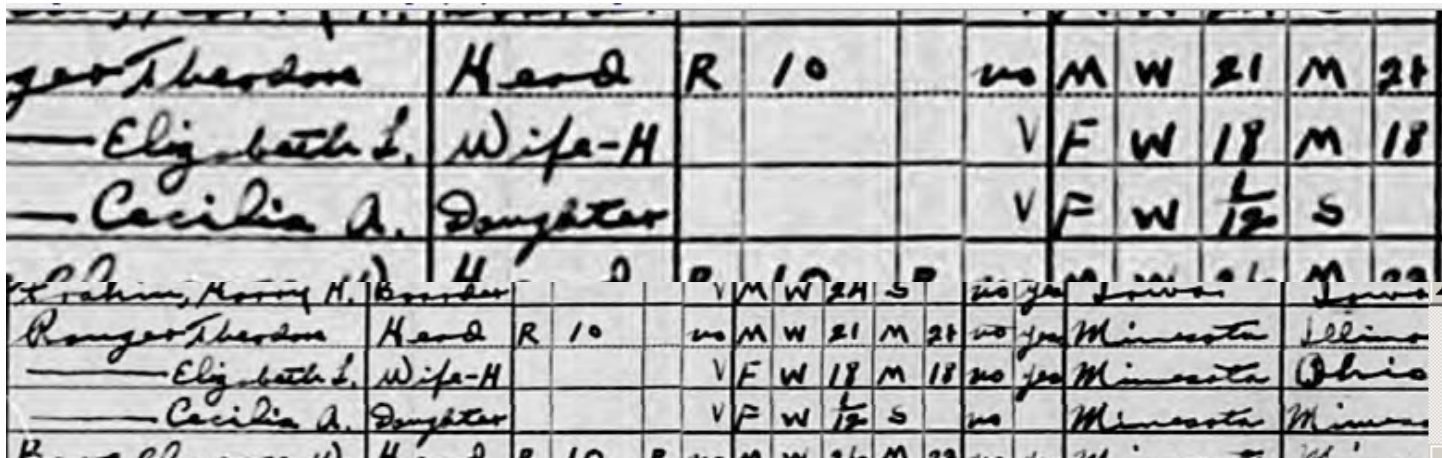 Theodore Head R 10 no M W 21 M 21
Elizabeth L. Wife-H V F W 18 M 18
Cecilia A. Daughter V F W 1/12 S
Harry H. Boarder V M W 24 S no yes Iowa Iowa
Ranger Theodore Head R 10 no M W 21 M 21 no yes Minnesota Illino
Elizabeth L. Wife-H V F W 18 M 18 no yes Minnesota Ohio
Cecilia A. Daughter V F W 1/12 S no Minnesota Minnes
R 10 R no M W 26 M 23